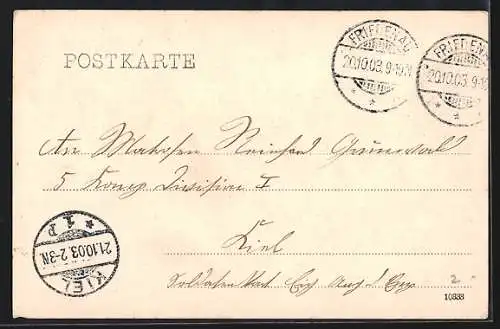 POSTKARTE
FRIEDENAU
20.10.03. 9-10N
* *
*
FRIEDENAU
20.10.03. 9-10
An Matrosen Reinhard Grunewal
5 Komp Division I
Kiel
Soldaten
KIEL
21.10.03. 2-3N
* 1 P
10333